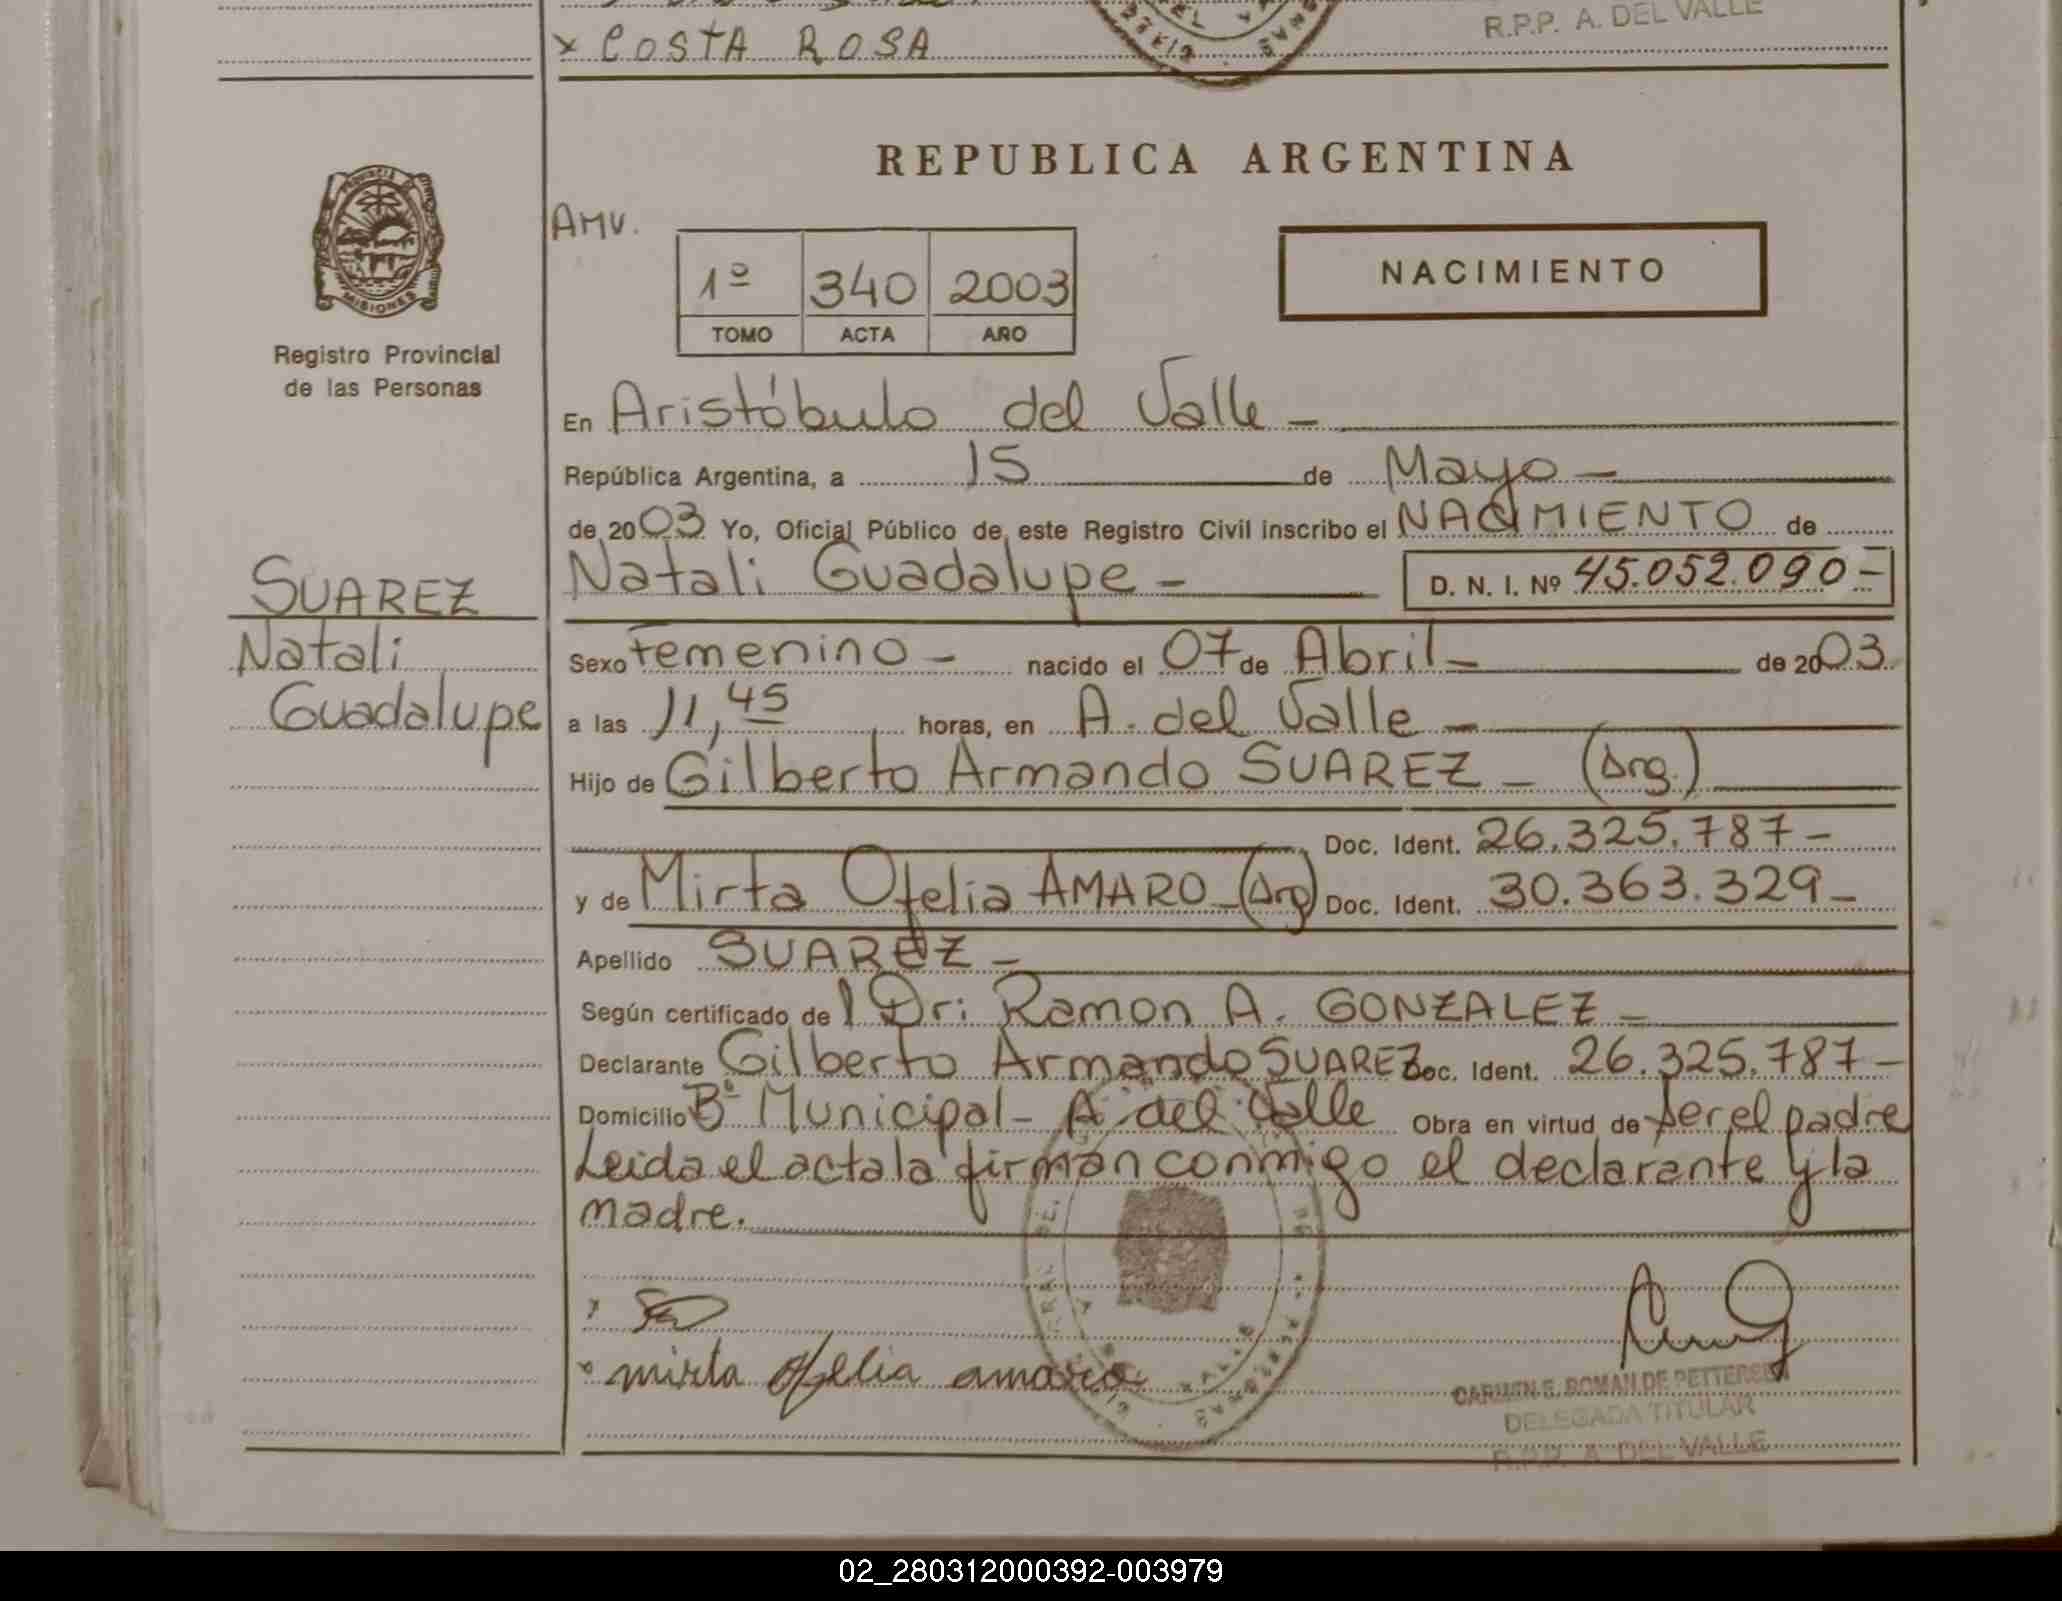 x COSTA ROSA
R.P.P. A. DEL VALLE
REPUBLICA ARGENTINA
PROVINCIA DE
MISIONES
Registro Provincial
de las Personas
AMV.
1º 340 2003
TOMO ACTA AÑO
NACIMIENTO
En Aristóbulo del Valle -
República Argentina, a 15 de Mayo -
de 2003 Yo, Oficial Público de este Registro Civil inscribo el NACIMIENTO de
SUAREZ
Natali
Guadalupe
Natali Guadalupe - D. N. I. Nº 45.052.090-
Sexo Femenino - nacido el 07 de Abril - de 2003
a las 11,45 horas, en A. del Valle -
Hijo de Gilberto Armando SUAREZ - (Arg.)
Doc. Ident. 26.325.787-
y de Mirta Ofelia AMARO - (Arg) Doc. Ident. 30.363.329-
Apellido SUAREZ -
Según certificado de l Dr: Ramon A. GONZALEZ -
Declarante Gilberto Armando SUAREZ Doc. Ident. 26.325.787-
Domicilio Bº Municipal - A. del Valle Obra en virtud de ser el padre
Leida el acta la firman conmigo el declarante y la
madre.
mirta Ofelia amaro
CARMEN S. ROMAN DE PETTERSEN
DELEGADA TITULAR
R.P.P. A. DEL VALLE
02_280312000392-003979